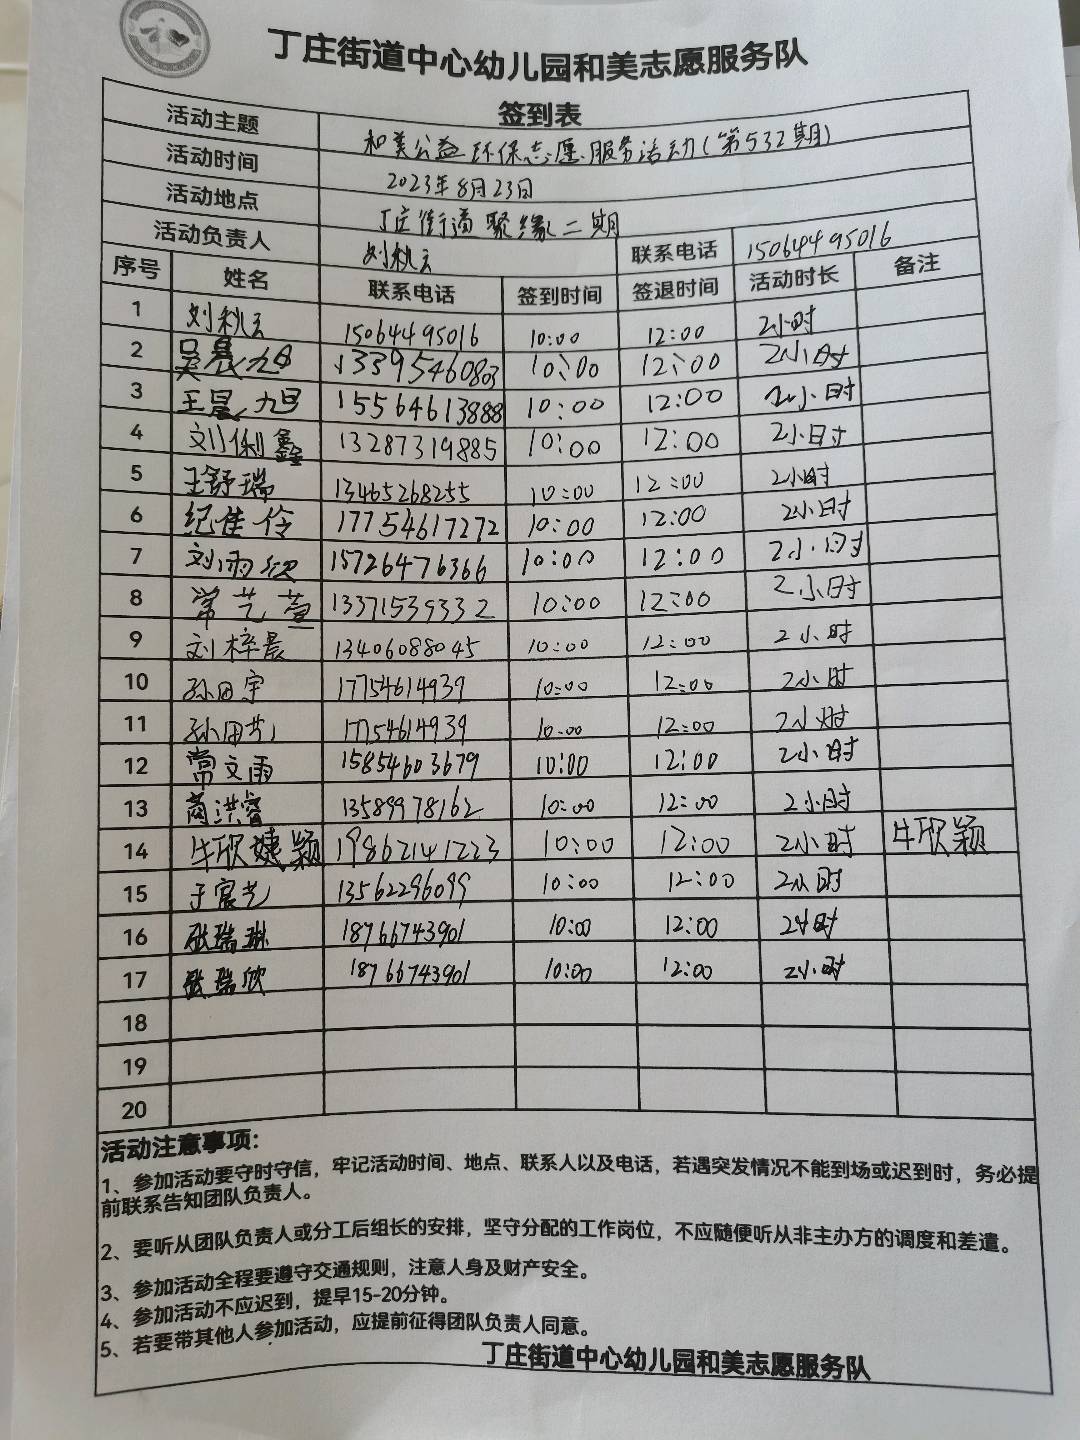 丁庄街道中心幼儿园和美志愿服务队
签到表
活动主题 和美公益环保志愿服务活动(第532期)
活动时间 2023年8月23日
活动地点 丁庄街道聚缘二期
活动负责人 刘秋云 联系电话 15064495016
序号 姓名 联系电话 签到时间 签退时间 活动时长 备注
1 刘秋云 15064495016 10:00 12:00 2小时
2 13395460803 10:00 12:00 2小时
3 15564613888 10:00 12:00 2小时
4 刘俐鑫 13287319885 10:00 12:00 2小时
5 王舒瑞 13465268255 10:00 12:00 2小时
6 纪佳伶 17754617272 10:00 12:00 2小时
7 刘雨欣 15726476366 10:00 12:00 2小时
8 常艺萱 13371539332 10:00 12:00 2小时
9 刘梓晨 13406088045 10:00 12:00 2小时
10 孙田宇 17754614939 10:00 12:00 2小时
11 孙田艺 17754614939 10:00 12:00 2小时
12 常文雨 15854603679 10:00 12:00 2小时
13 商洪睿 13589978162 10:00 12:00 2小时
14 牛欣颖 19862141223 10:00 12:00 2小时 牛欣颖
15 于宸艺 13562296099 10:00 12:00 2小时
16 张瑞琳 18766743901 10:00 12:00 2小时
17 张瑞欣 18766743901 10:00 12:00 2小时
18
19
20
活动注意事项:
1、参加活动要守时守信，牢记活动时间、地点、联系人以及电话，若遇突发情况不能到场或迟到时，务必提
前联系告知团队负责人。
2、要听从团队负责人或分工后组长的安排，坚守分配的工作岗位，不应随便听从非主办方的调度和差遣。
3、参加活动全程要遵守交通规则，注意人身及财产安全。
4、参加活动不应迟到，提早15-20分钟。
5、若要带其他人参加活动，应提前征得团队负责人同意。
丁庄街道中心幼儿园和美志愿服务队